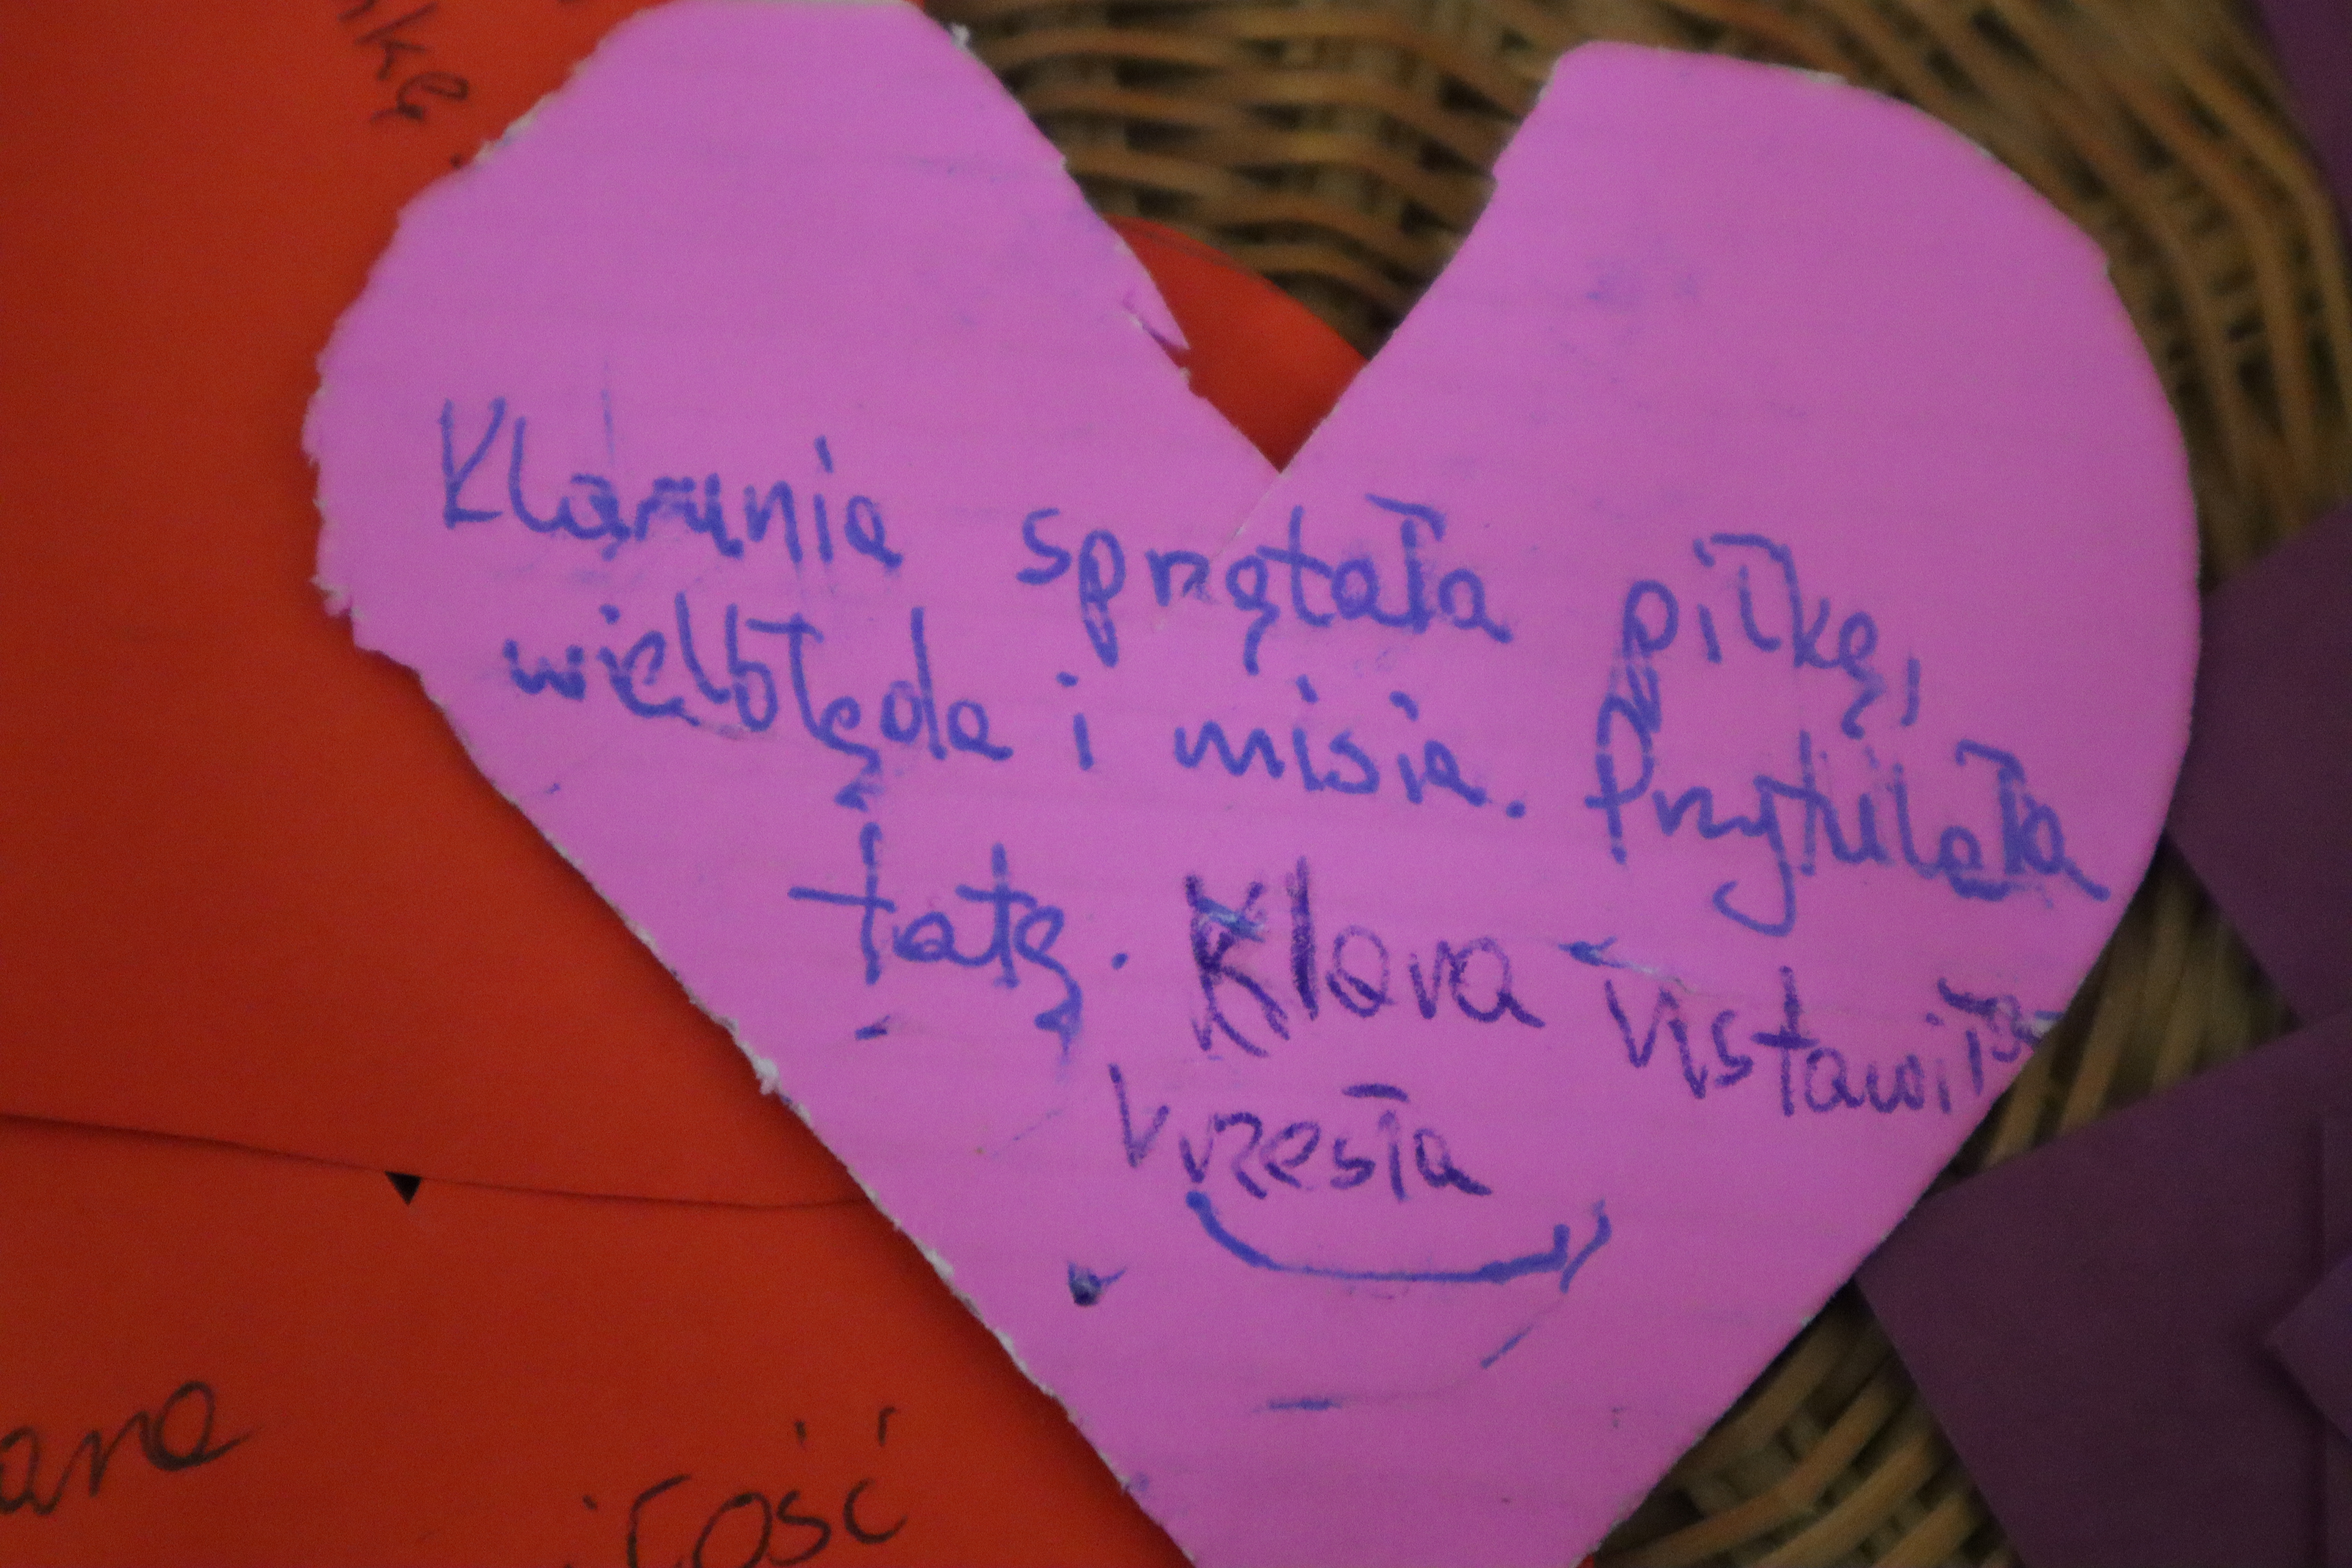 Klarunia sprzątała piłkę,
wielbłąda i misia. Przytulała
tatę. Klara ustawiła
krzesła
ara
łość